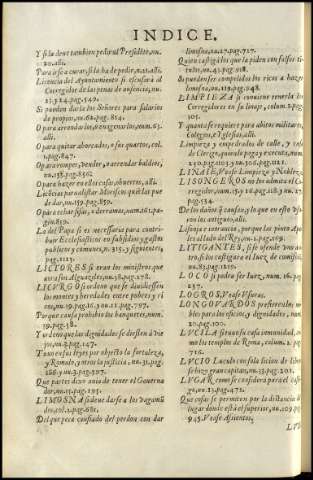 INDICE.
Y si la deue tambien pedir al Presidẽte, nu.
20. alli.
Para irse a curar, si la ha de pedir, n.21. alli.
Licencia del Ayuntamiento si escusarà al
Corregidor de las penas de ausencia, nu.
22. y 24. pag. 540.
Si pueden darla los Señores para salarios
de propios, nu. 62. pag. 814.
O para arrendarlos, o enagenarlos, num. 63.
alli.
O para quitar aboreados, o sus quartos, col.
1. pag. 847.
O para romper, vender, y arrendar baldios,
nu. 158. pag. 856.
O para hazer en ellos casas, o huertos, alli.
Licẽcias para alistar Moriscos quiẽ las pue
de dar, nu. 159. pag. 859.
O para echar sisas, o derramas, num. 161. pa-
gin. 859.
La del Papa si es necessaria para contri-
buir Eclesiasticos en subsidios, y gastos
publicos y comunes, n. 315. y siguientes,
pag. 1123.
LICTORES si eran los ministros, que
aora son Alguaziles, nu. 38. pag. 178.
LICVRGO si ordenò que se diuidiessen
los montes y heredades entre pobres y ri
cos, nu. 19. pag. 16. y nu. 12. pag. 797.
Por que causa prohibio los banquetes, num.
19. pag. 38.
Y ordenò que las dignidades se diessen a vie
jos, nu. 3. pag. 147.
Tuuo en sus leyes por objecto la fortaleza,
y Romulo, y otros la justicia, nu. 31. pag.
286. y nu. 3. pag. 507.
Que partes deue auia de tener el Gouerna
dor, nu. 15. pag. 193.
LIMOSNA si deue darse a los vagamũ
dos, col. 2. pag. 681.
Del que pea confiado del perdon con dar
limosna, nu. 27. pag. 727.
Quien castiga los que la piden con falsos ti-
tulos, nu. 43. pag. 918.
Si pueden ser compelidos los ricos a hazer
limosna, nu. 23. pag. 948.
LIMPIEZA si conuiene tenerla los
Corregidores en su linage, colum. 2. pag.
105.
Y quanto se requiere para abitos militares,
colegios, è Iglesias, alli.
Limpieza y empedrados de calle, y casas
de Clerigo, quien lo paga y executa, num.
220. pag. 1103. y nu. 306. pag. 1121.
LINAGE, Vease Limpieza y Nobleza.
LISONGEROS no los admita el Co-
rregidor, num. 15. y 16. pag. 118. y nu. 21.
pag. 534.
De los daños q̃ causan, y lo que en esto vsa
ron los antiguos, alli.
Lisonja e intencion, porque las pinto Ape-
les al lado del Rey, nu. 2. pag. 293.
LITIGANTES, si ofendiendo vno a o-
tro, si los castigarà el Iuez de comissiõ,
nu. 83. pag. 1215.
LOCO si podra ser Iuez, num. 16. pag.
237.
LOGROS, Vease Vsuras.
LONGOVARDOS preferirlos no-
bles para los oficios, y dignidades, num.
20. pag. 100.
LVCILA si tenia su casa inmunidad, co
mo los templos de Roma, colum. 2. pag.
716.
LVCIO Luculo consul si lucion de libertad
se hizo gran capitan, nu. 33. pag. 201.
LVGAR como se considera para el casti-
go, nu. 13. pag. 471.
Que cosas se permiten por la distancia del
lugar donde està el superior, nu. 109. pag.
945. Vease Assientos.
LVI